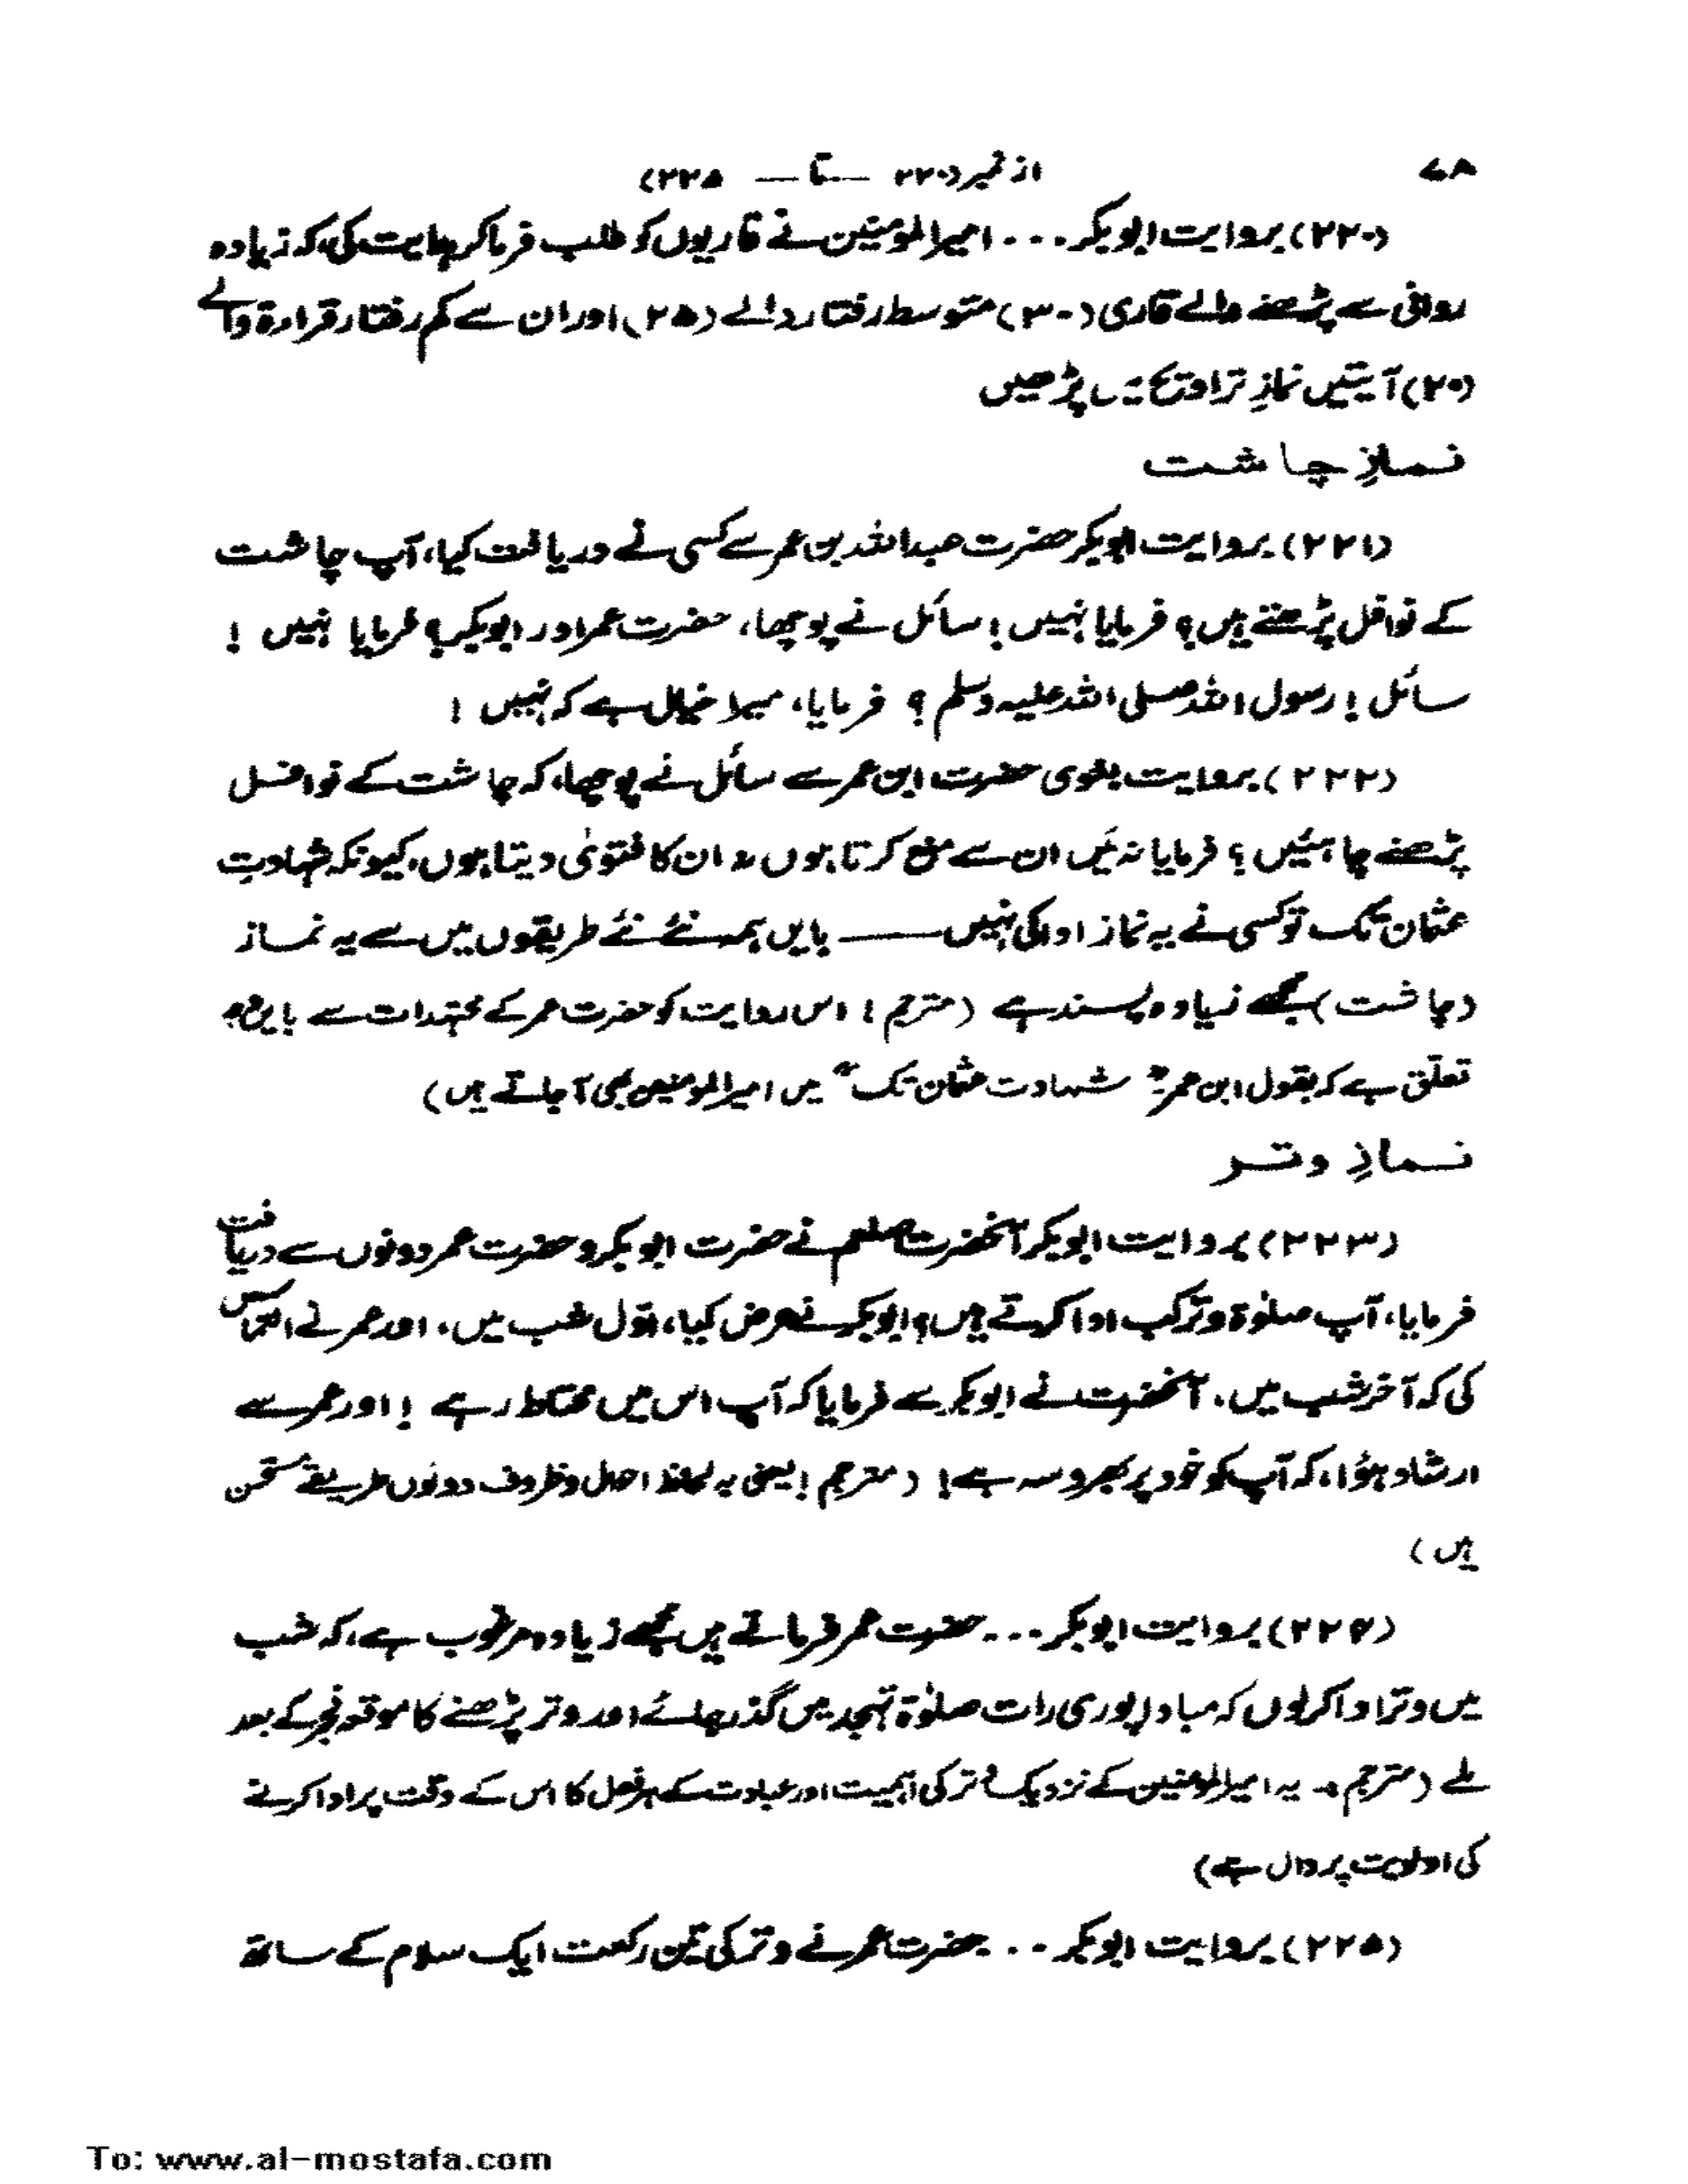 ۷۸
از نمبر (۲۲۰ — تا — ۲۲۵)
(۲۲۰) بروایت ابوبکر ... امیرالمؤمنین نے قاریوں کو طلب فرما کر ہدایت کی، کہ زیادہ
روانی سے پڑھنے والے قاری (۳۰) متوسط رفتار والے (۲۵) اور ان سے کم رفتار قراءۃ والے
(۲۰) آیتیں نمازِ تراویح میں پڑھیں
نمازِ چاشت
(۲۲۱) بروایت ابوبکر حضرت عبداللہ بن عمر سے کسی نے دریافت کیا، آپ چاشت
کے نوافل پڑھتے ہیں؟ فرمایا نہیں! سائل نے پوچھا، حضرت عمر اور ابوبکر؟ فرمایا نہیں !
سائل ! رسول اللہ صلی اللہ علیہ وسلم ؟ فرمایا، میرا خیال ہے کہ نہیں !
(۲۲۲) بروایت بغوی حضرت ابن عمر سے سائل نے پوچھا، کہ چاشت کے نوافل
پڑھنے چاہئیں ؟ فرمایا نہ میں ان سے منع کرتا ہوں نہ ان کا فتویٰ دیتا ہوں، کیونکہ شہادتِ
عثمان تک تو کسی نے یہ نماز ادا کی نہیں —— بایں ہمہ نئے نئے طریقوں میں سے یہ نماز
(چاشت) مجھے زیادہ پسند ہے (مترجم ! اس روایت کو حضرت عمر کے مجتہدات سے بایں وجہ
تعلق ہے کہ بقول ابن عمر " شہادت عثمان تک " میں امیرالمومنین بھی آ جاتے ہیں)
نمازِ وتر
(۲۲۳) بروایت ابوبکر آنخضرت صلعم نے حضرت ابوبکر و حضرت عمر دونوں سے دریافت
فرمایا، آپ صلوٰۃ وتر کب ادا کرتے ہیں؟ ابوبکر نے عرض کیا، اوّل شب میں، اور عمر نے التماس
کی کہ آخر شب میں، آنحضرت نے ابوبکر سے فرمایا کہ آپ اس میں محتاط رہے ! اور عمر سے
ارشاد ہؤا، کہ آپ کو خود پر بھروسہ ہے! (مترجم ! یعنی بہ لحاظ احوال و ظروف دونوں طریقے مستحسن
ہیں)
(۲۲۴) بروایت ابوبکر ... حضرت عمر فرماتے ہیں مجھے زیادہ مرغوب ہے، کہ شب
میں وتر ادا کر لوں کہ مبادا پوری رات صلوٰۃ تہجد میں گذر جائے اور وتر پڑھنے کا موقعہ فجر کے بعد
ملے (مترجم :- یہ امیرالمومنین کے نزدیک وتر کی اہمیت اور عبادت کے ہر فعل کا اس کے وقت پر ادا کرنے
کی اولویت پر دال ہے)
(۲۲۵) بروایت ابوبکر .. حضرت عمر نے وتر کی تین رکعت ایک سلام کے ساتھ
To: www.al-mostafa.com